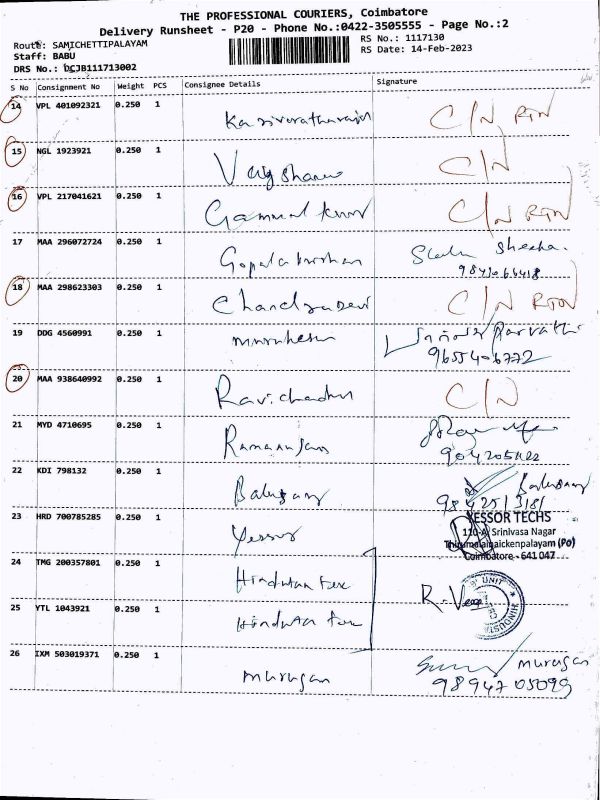 THE PROFESSIONAL COURIERS, Coimbatore
Delivery Runsheet - P20 - Phone No.:0422-3505555 - Page No.:2
Route: SAMICHETTIPALAYAM
RS No.: 1117130
Staff: BABU
RS Date: 14-Feb-2023
DRS No.: DCJB111713002
S No Consignment No Weight PCS Consignee Details Signature
14 VPL 401092321 0.250 1 C/N RTN
15 NGL 1923921 0.250 1 C/N
16 VPL 217041621 0.250 1 C/N RTN
17 MAA 296072724 0.250 1 Gopalakrishnan
18 MAA 298623303 0.250 1 Chandradevi C/N RTN
19 DDG 4560991 0.250 1 Parvathi
9655406772
20 MAA 938640992 0.250 1 C/N
21 MYD 4710695 0.250 1
22 KDI 798132 0.250 1
23 HRD 700785285 0.250 1 Yessor
YESSOR TECHS
110-A, Srinivasa Nagar
Thirumalainaickenpalayam (PO)
Coimbatore - 641 047
24 TMG 200357801 0.250 1 Hindustan Tex
25 YTL 1043921 0.250 1 R. Veera
UNIT
26 IXM 503019371 0.250 1 Murugan Murugan
98947 05099